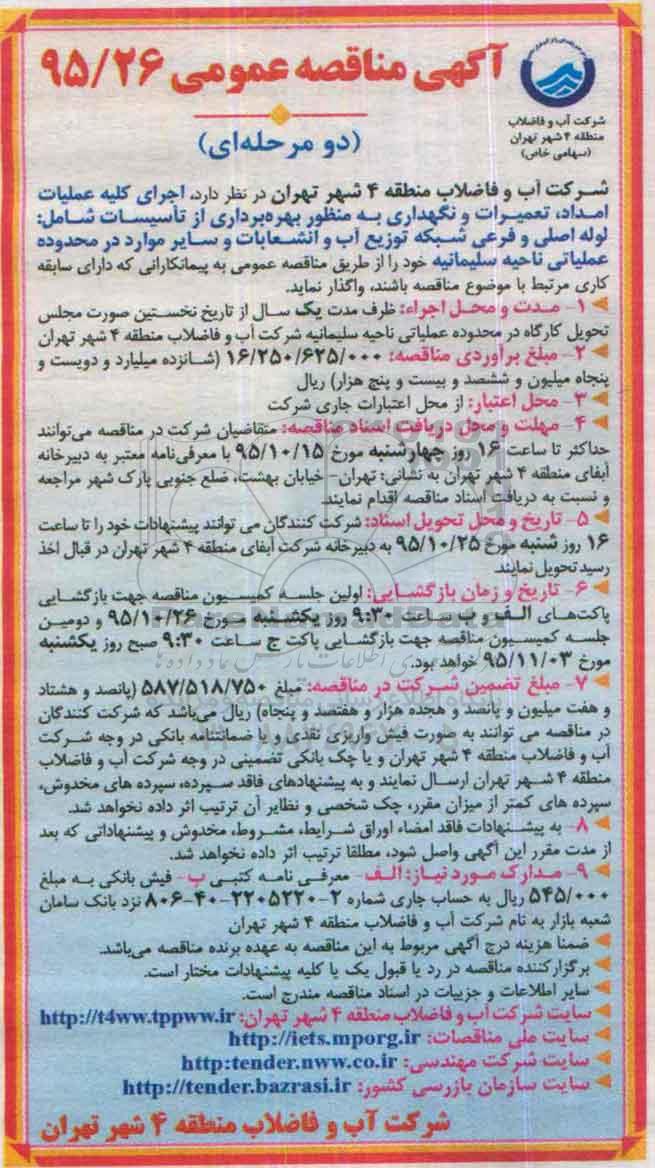 آگهی مناقصه عمومی ۹۵/۲۶
(دو مرحله‌ای)
شرکت آب و فاضلاب
منطقه ۴ شهر تهران
(سهامی خاص)
شرکت آب و فاضلاب منطقه ۴ شهر تهران در نظر دارد، اجرای کلیه عملیات
امداد، تعمیرات و نگهداری به منظور بهره‌برداری از تأسیسات شامل:
لوله اصلی و فرعی شبکه توزیع آب و انشعابات و سایر موارد در محدوده
عملیاتی ناحیه سلیمانیه خود را از طریق مناقصه عمومی به پیمانکارانی که دارای سابقه
کاری مرتبط با موضوع مناقصه باشند، واگذار نماید.
۱- مدت و محل اجراء: ظرف مدت یک سال از تاریخ نخستین صورت مجلس
تحویل کارگاه در محدوده عملیاتی ناحیه سلیمانیه شرکت آب و فاضلاب منطقه ۴ شهر تهران
۲- مبلغ برآوردی مناقصه: ۱۶/۲۵۰/۶۲۵/۰۰۰ (شانزده میلیارد و دویست و
پنجاه میلیون و ششصد و بیست و پنج هزار) ریال
۳- محل اعتبار: از محل اعتبارات جاری شرکت
۴- مهلت و محل دریافت اسناد مناقصه: متقاضیان شرکت در مناقصه می‌توانند
حداکثر تا ساعت ۱۶ روز چهارشنبه مورخ ۹۵/۱۰/۱۵ با معرفی‌نامه معتبر به دبیرخانه
آبفای منطقه ۴ شهر تهران به نشانی: تهران- خیابان بهشت، ضلع جنوبی پارک شهر مراجعه
و نسبت به دریافت اسناد مناقصه اقدام نمایند.
۵- تاریخ و محل تحویل اسناد: شرکت کنندگان می توانند پیشنهادات خود را تا ساعت
۱۶ روز شنبه مورخ ۹۵/۱۰/۲۵ به دبیرخانه شرکت آبفای منطقه ۴ شهر تهران در قبال اخذ
رسید تحویل نمایند.
۶- تاریخ و زمان بازگشایی: اولین جلسه کمیسیون مناقصه جهت بازگشایی
پاکت‌های الف و ب ساعت ۹:۳۰ روز یکشنبه مورخ ۹۵/۱۰/۲۶ و دومین
جلسه کمیسیون مناقصه جهت بازگشایی پاکت ج ساعت ۹:۳۰ صبح روز یکشنبه
مورخ ۹۵/۱۱/۰۳ خواهد بود.
۷- مبلغ تضمین شرکت در مناقصه: مبلغ ۵۸۷/۵۱۸/۷۵۰ (پانصد و هشتاد
و هفت میلیون و پانصد و هجده هزار و هفتصد و پنجاه) ریال می‌باشد که شرکت کنندگان
در مناقصه می توانند به صورت فیش واریزی نقدی و یا ضمانتنامه بانکی در وجه شرکت
آب و فاضلاب منطقه ۴ شهر تهران و یا چک بانکی تضمینی در وجه شرکت آب و فاضلاب
منطقه ۴ شهر تهران ارسال نمایند و به پیشنهادهای فاقد سپرده، سپرده های مخدوش،
سپرده های کمتر از میزان مقرر، چک شخصی و نظایر آن ترتیب اثر داده نخواهد شد.
۸- به پیشنهادات فاقد امضاء اوراق شرایط، مشروط، مخدوش و پیشنهاداتی که بعد
از مدت مقرر این آگهی واصل شود، مطلقا ترتیب اثر داده نخواهد شد.
۹- مدارک مورد نیاز: الف- معرفی نامه کتبی ب- فیش بانکی به مبلغ
۵۴۵/۰۰۰ ریال به حساب جاری شماره ۲-۲۲۰۵۲۲۰-۴۰-۸۰۶ نزد بانک سامان
شعبه بازار به نام شرکت آب و فاضلاب منطقه ۴ شهر تهران
ضمنا هزینه درج آگهی مربوط به این مناقصه به عهده برنده مناقصه می‌باشد.
برگزارکننده مناقصه در رد یا قبول یک یا کلیه پیشنهادات مختار است.
سایر اطلاعات و جزییات در اسناد مناقصه مندرج است.
سایت شرکت آب و فاضلاب منطقه ۴ شهر تهران: http://t4ww.tppww.ir
سایت ملی مناقصات: http://iets.mporg.ir
سایت شرکت مهندسی: http:tender.nww.co.ir
سایت سازمان بازرسی کشور: http://tender.bazrasi.ir
شرکت آب و فاضلاب منطقه ۴ شهر تهران